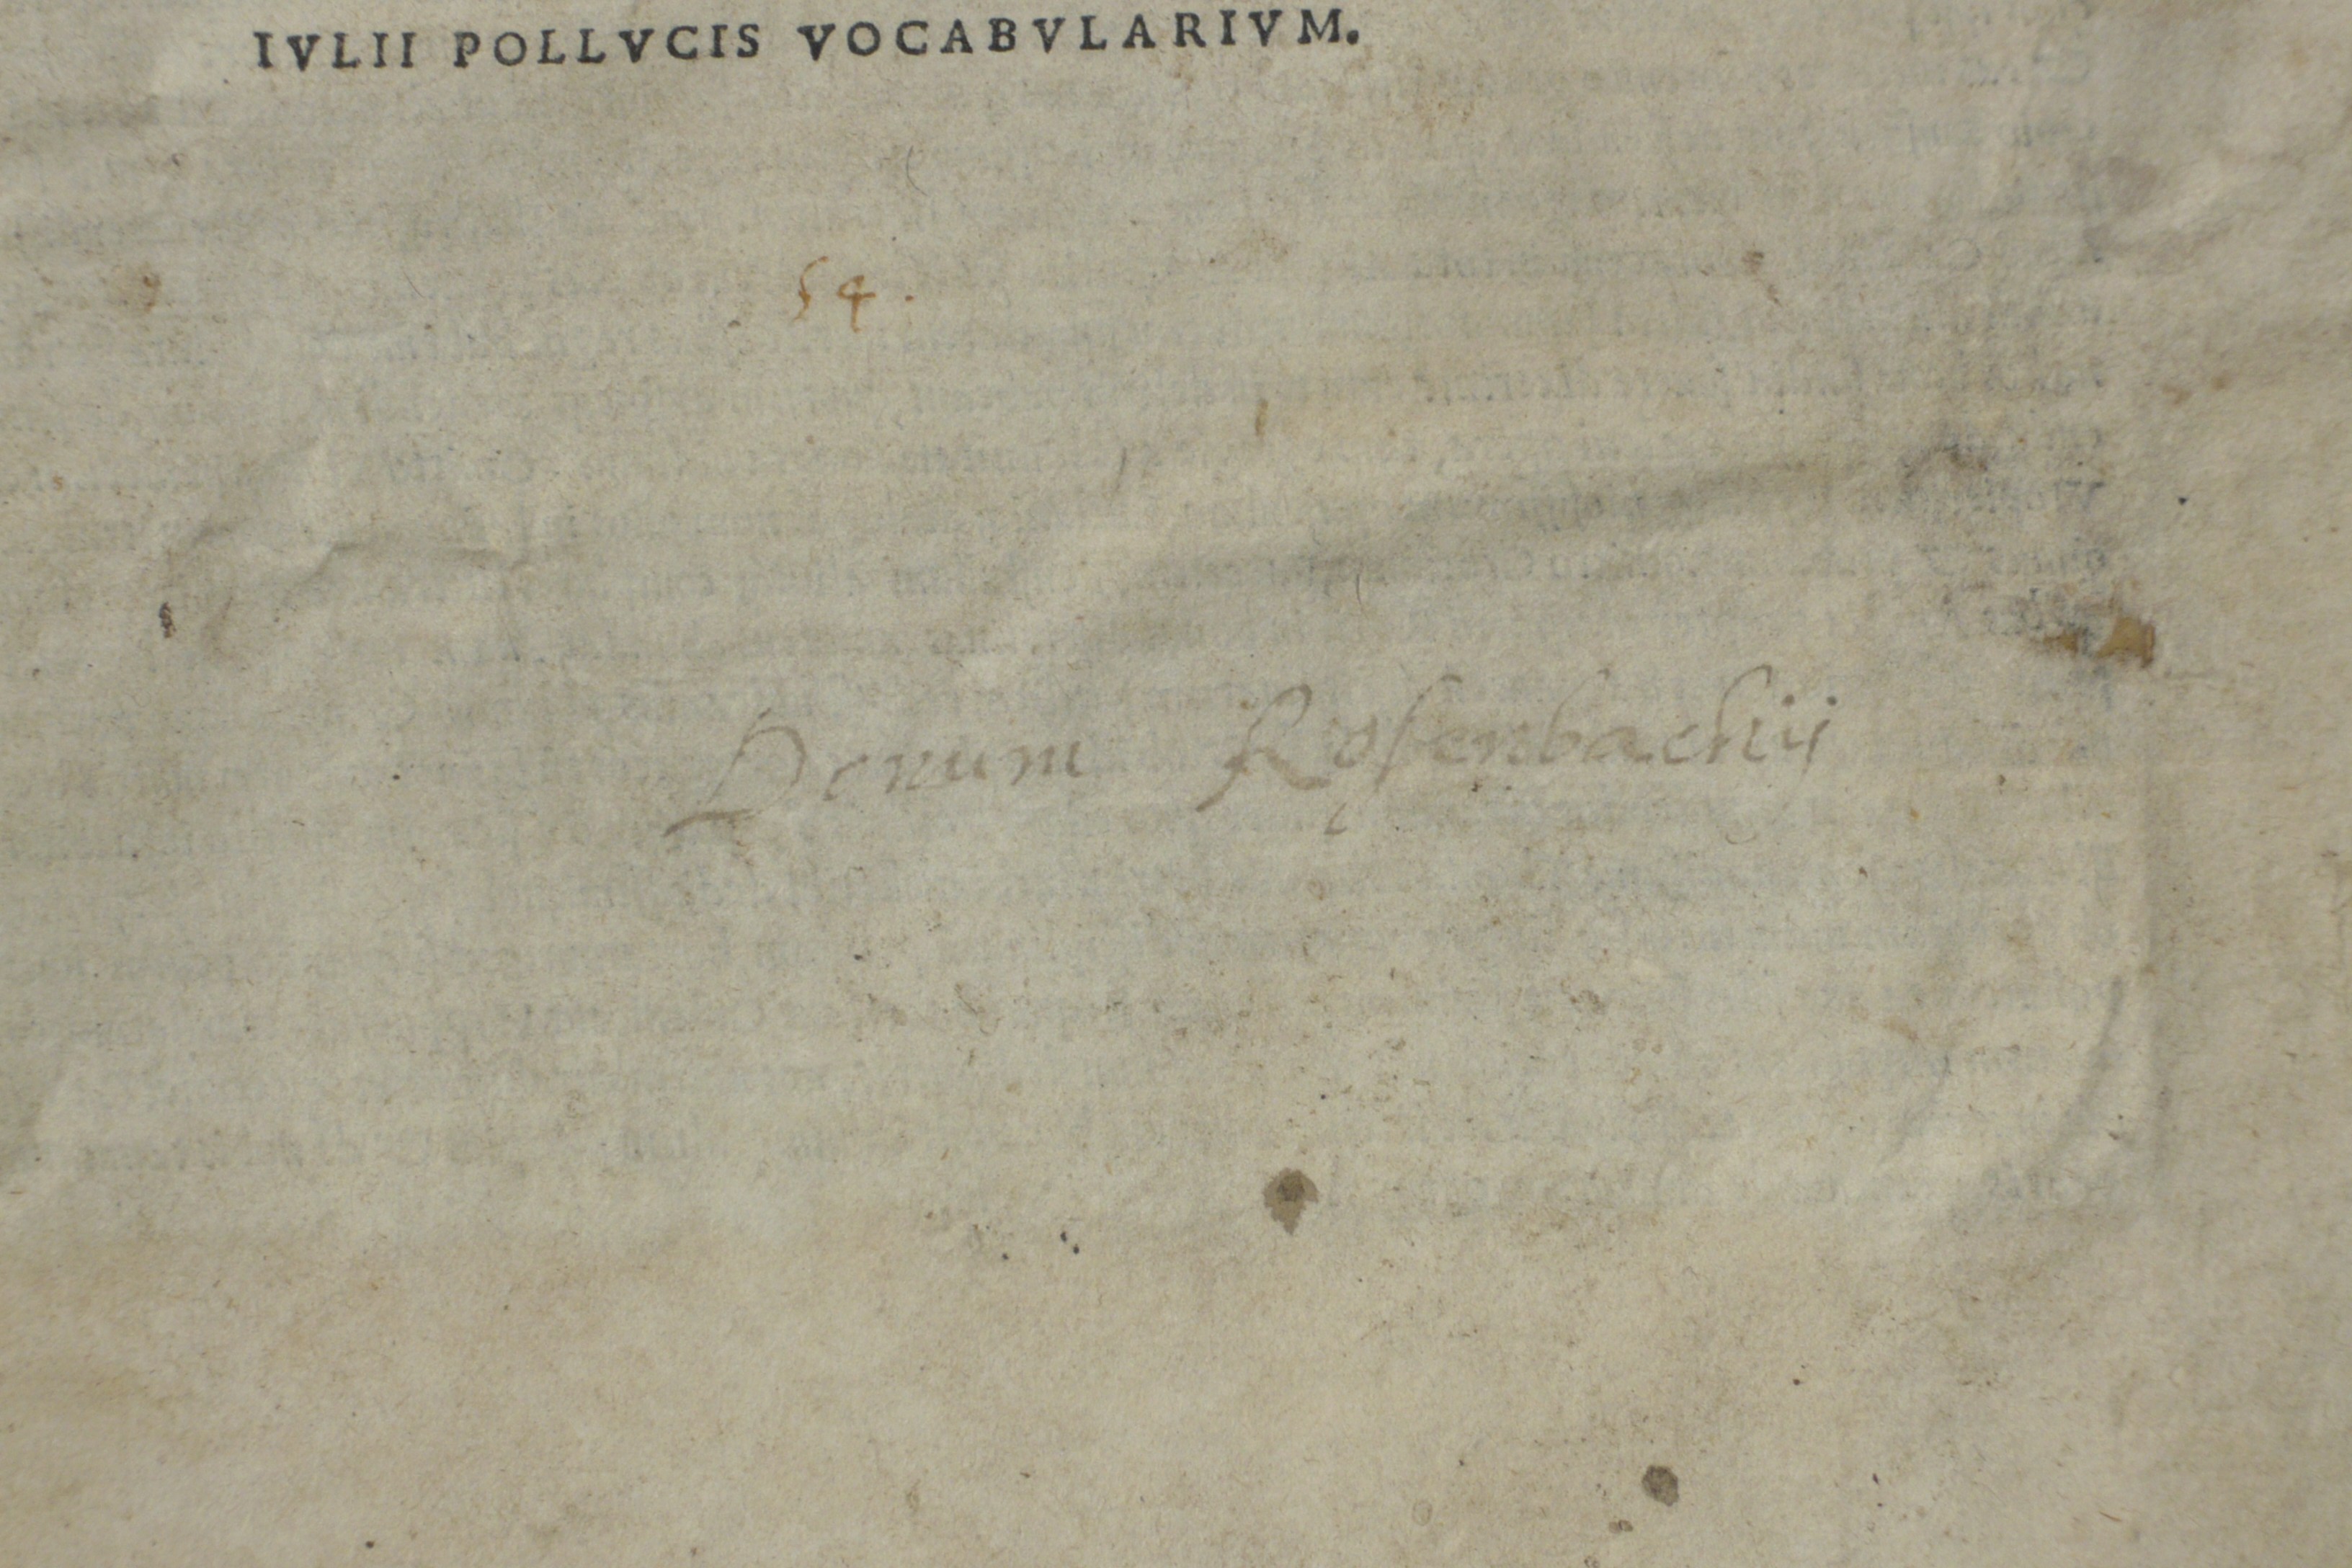 IVLII POLLVCIS VOCABVLARIVM.
54.
Donum Rosenbachij